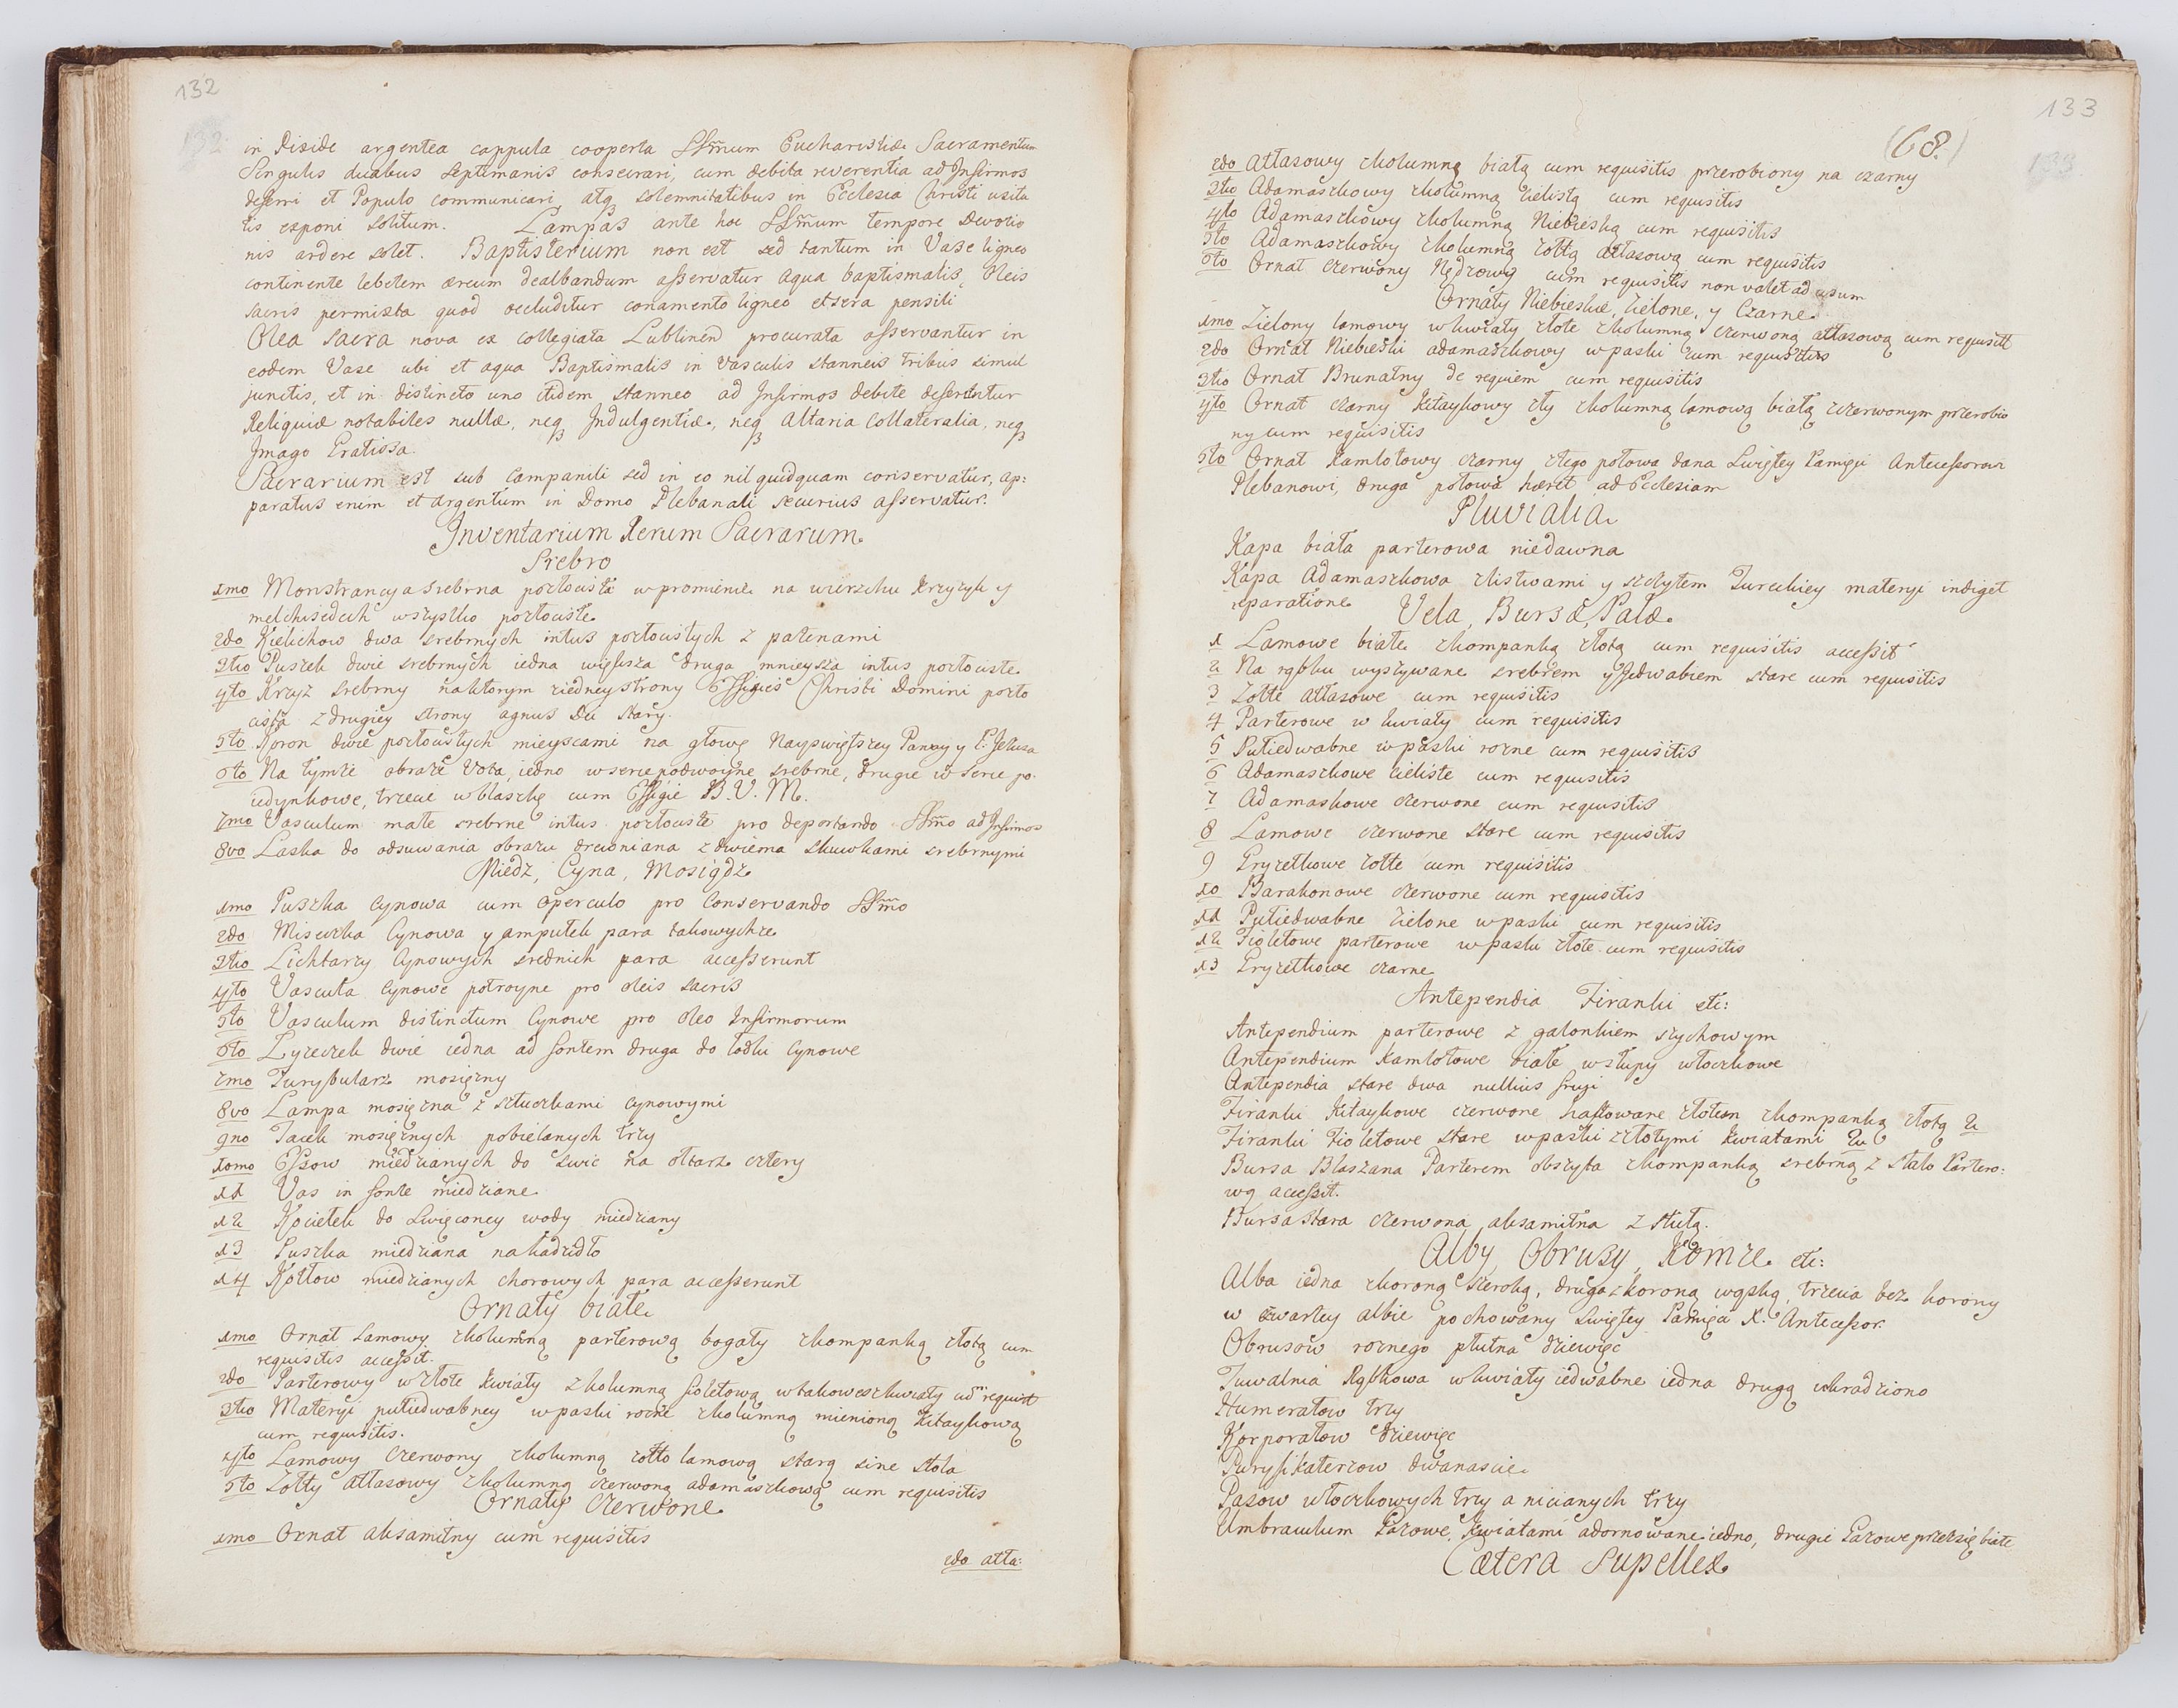 132
132
in Pixide argentea cappula cooperta SSm̃um Eucharistiæ Sacramentum
Singulis duabus septimanis conservari, cum debita reverentia ad Infirmos
deferri et Populo communicari atq solemnitatibus in Ecclesia Christi usita
tis exponi solitum. Lampas ante hoc SSm̃um tempore Devotio
nis ardere solet. Baptisterium non est sed tantum in Vase ligneo
continente lebetem æreum dealbandum asservatur aqua baptismalis Oleis
sacris permixta quod occluditur conamento ligneo et sera pensili
Olea Sacra nova ex collegiata Lublinen procurata asservantur in
eodem Vase ubi et aqua Baptismalis in Vasculis stanneis tribus simul
junctis, et in distincto uno itidem stanneo ad Infirmos debite deferuntur
Reliquiæ notabiles nullæ, neq Indulgentiæ, neq Altaria Collateralia, neq
Imago Gratiosa.
Sacrarium est sub Campanili sed in eo nil quidquam conservatur, ap:
paratus enim et argentum in Domo Plebanali securius asservatur.
Inventarium Rerum Sacrarum
Srebro
1mo Monstrancya srebrna pozłocista w promienie na wierzchu krzyzyk y
melchisedech wszystko pozłociste
2do Kielichow dwa srebrnych intus pozłocistych z patenami
3tio Puszek dwie srebrnych iedna większa druga mnieysza intus pozłociste
4to Krzyz srebrny na ktorym ziedney strony Effigies Christi Domini pozło
cista z drugiey strony agnus Dei stary.
5to Koron dwie pozłocistych mieyscami na głowę Nayswiętszey Panny y P. Jezusa
6to Na tymże obrazie Vota, iedno w serce podwoyne srebrne, drugie w serce po
iedynkowe, trzecie w blaszkę cum Effigie B. V. M.
7mo Vasculum małe srebrne intus pozłociste pro deportando SSm̃o ad Infirmos
8vo Laska do odsuwania obrazu drewniana z dwiema skuwkami srebrnymi
Miedz, Cyna, Mosiądz
1mo Puszka Cynowa cum operculo pro Conservando SSm̃o
2do Miseczka Cynowa y ampułek para takowychze
3tio Lichtarzy Cynowych srednich para accesserunt
4to Vascula Cynowe potroyne pro oleis sacris
5to Vasculum distinctum Cynowe pro oleo Infirmorum
6to Lyzeczek dwie iedna ad fontem druga do łodki Cynowe
7mo Turybularz mosięzny
8vo Lampa mosięzna z sztuczkami cynowymi
9no Tacek mosięznych pobielanych trzy
10mo Essow miedzianych do swic na ołtarz cztery
11 Vas in fonte miedziane
12 Kociełek do swięconey wody miedziany
13 Puszka miedziana na kadzidło
14 Kotłow miedzianych chorowych para accesserunt
Ornaty białe
1mo Ornat Lamowy zkolumną parterową bogaty zkompanką złotą cum
requisitis accessit.
2do Parterowy w złote kwiaty z kolumną fioletową w takowesz kwiaty cum requisit
3tio Materyi pułiedwabney w paski rozne zkolumną mienioną kitaykową
cum requisitis.
4to Lamowy Czerwony zkolumną zołto lamową starą sine stola
5to Zołty atłasowy zkolumną czerwoną adamaszkową cum requisitis
Ornaty Czerwone
1mo Ornat aksamitny cum requisitis
2do atła:
133
(68.)
133
2do Atłasowy zkolumną białą cum requisitis przerobiony na czarny
3tio Adamaszkowy zkolumną cielistą cum requisitis
4to Adamaszkowy zkolumną Niebieską cum requisitis
5to Adamaszkowy zkolumną zołtą atłasową cum requisitis
6to Ornat czerwony Nędzowy cum requisitis non valet ad usum
Ornaty Niebieskie, Zielone, y Czarne
1mo Zielony lamowy w kwiaty złote zkolumną czerwoną atłasową cum requisit
2do Ornat Niebieski adamaszkowy w paski cum requisitis
3tio Ornat Brunatny de requiem cum requisitis
4to Ornat czarny kitaykowy zły zkolumną lamową białą z czerwonym przerobio
ny cum requisitis
5to Ornat kamlotowy czarny ztego połowa dana Swiętey Pamięci Antecessorowi
Plebanowi, druga połowa hæret ad Ecclesiam
Pluvialia
Kapa biała parterowa niedawna
Kapa Adamaszkowa zlistwami y szczytem Tureckiey materyi indiget
reparatione
Vela, Bursæ, Palæ
1 Lamowe białe zkompanką złotą cum requisitis accessit
2 Na rąbku wyszywane srebrem y jedwabiem stare cum requisitis
3 Zołte atłasowe cum requisitis
4 Parterowe w kwiaty cum requisitis
5 Pułiedwabne w paski rozne cum requisitis
6 Adamaszkowe cieliste cum requisitis
7 Adamaskowe czerwone cum requisitis
8 Lamowe czerwone stare cum requisitis
9 Gryzetkowe zołte cum requisitis
10 Barakonowe czerwone cum requisitis
11 Pułiedwabne zielone w paski cum requisitis
12 Fioletowe parterowe w paski złote cum requisitis
13 Gryzetkowe czarne
Antependia Firanki etc:
Antependium parterowe z galonkiem szychowym
Antependium kamlotowe białe w słupy włoczkowe
Antependia stare dwa nullius frugi
Firanki kitaykowe czerwone haftowane złotem zkompanką złotą 2
Firanki Fioletowe stare w paski z złotymi kwiatami 2
Bursa Blaszana Parterem obszyta zkompanką srebrną z stułą Partero:
wą accessit.
Bursa stara czerwona aksamitna z stułą.
Alby, Obrusy, Komże etc:
Alba iedna zkoroną szeroką, druga zkoroną wąską, trzecia bez korony
w czwartey albie pochowany swiętey Pamięci X. Antecessor.
Obrusow roznego płutna dziewięc
Tuwalnia Rąbkowa w kwiaty iedwabne iedna drugą ukradziono
Humerałow trzy
Korporałow dziewięc
Puryfikaterzow dwanascie
Pasow włoczkowych trzy a nicianych trzy
Umbraculum Gazowe kwiatami adornowane iedno, drugie Gazowe przez się białe
Cætera Supellex